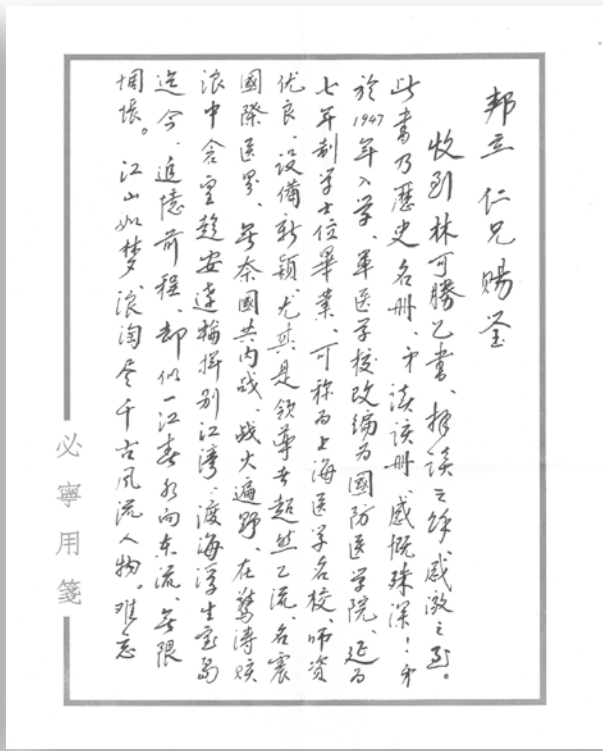 邦立仁兄赐鉴
收到林可勝乙書、拜读之餘感激之至。
此書乃歷史名册、弟读该册、感慨殊深！弟
於1947年入学、軍医学校改编为國防医学院、延为
七年制学士位畢業、可称为上海医学名校、师资
优良、设備新颖、尤其是领导者超然乙流、名震
國際医界、無奈國共内战、战火遍野、在驚涛骇
浪中仓皇趁安達輪揮别江湾、渡海浮生宝岛
迄今、追憶前程、却似一江春水向东流、無限
惆怅。江山如梦、浪淘尽千古风流人物。难忘
必寧用箋